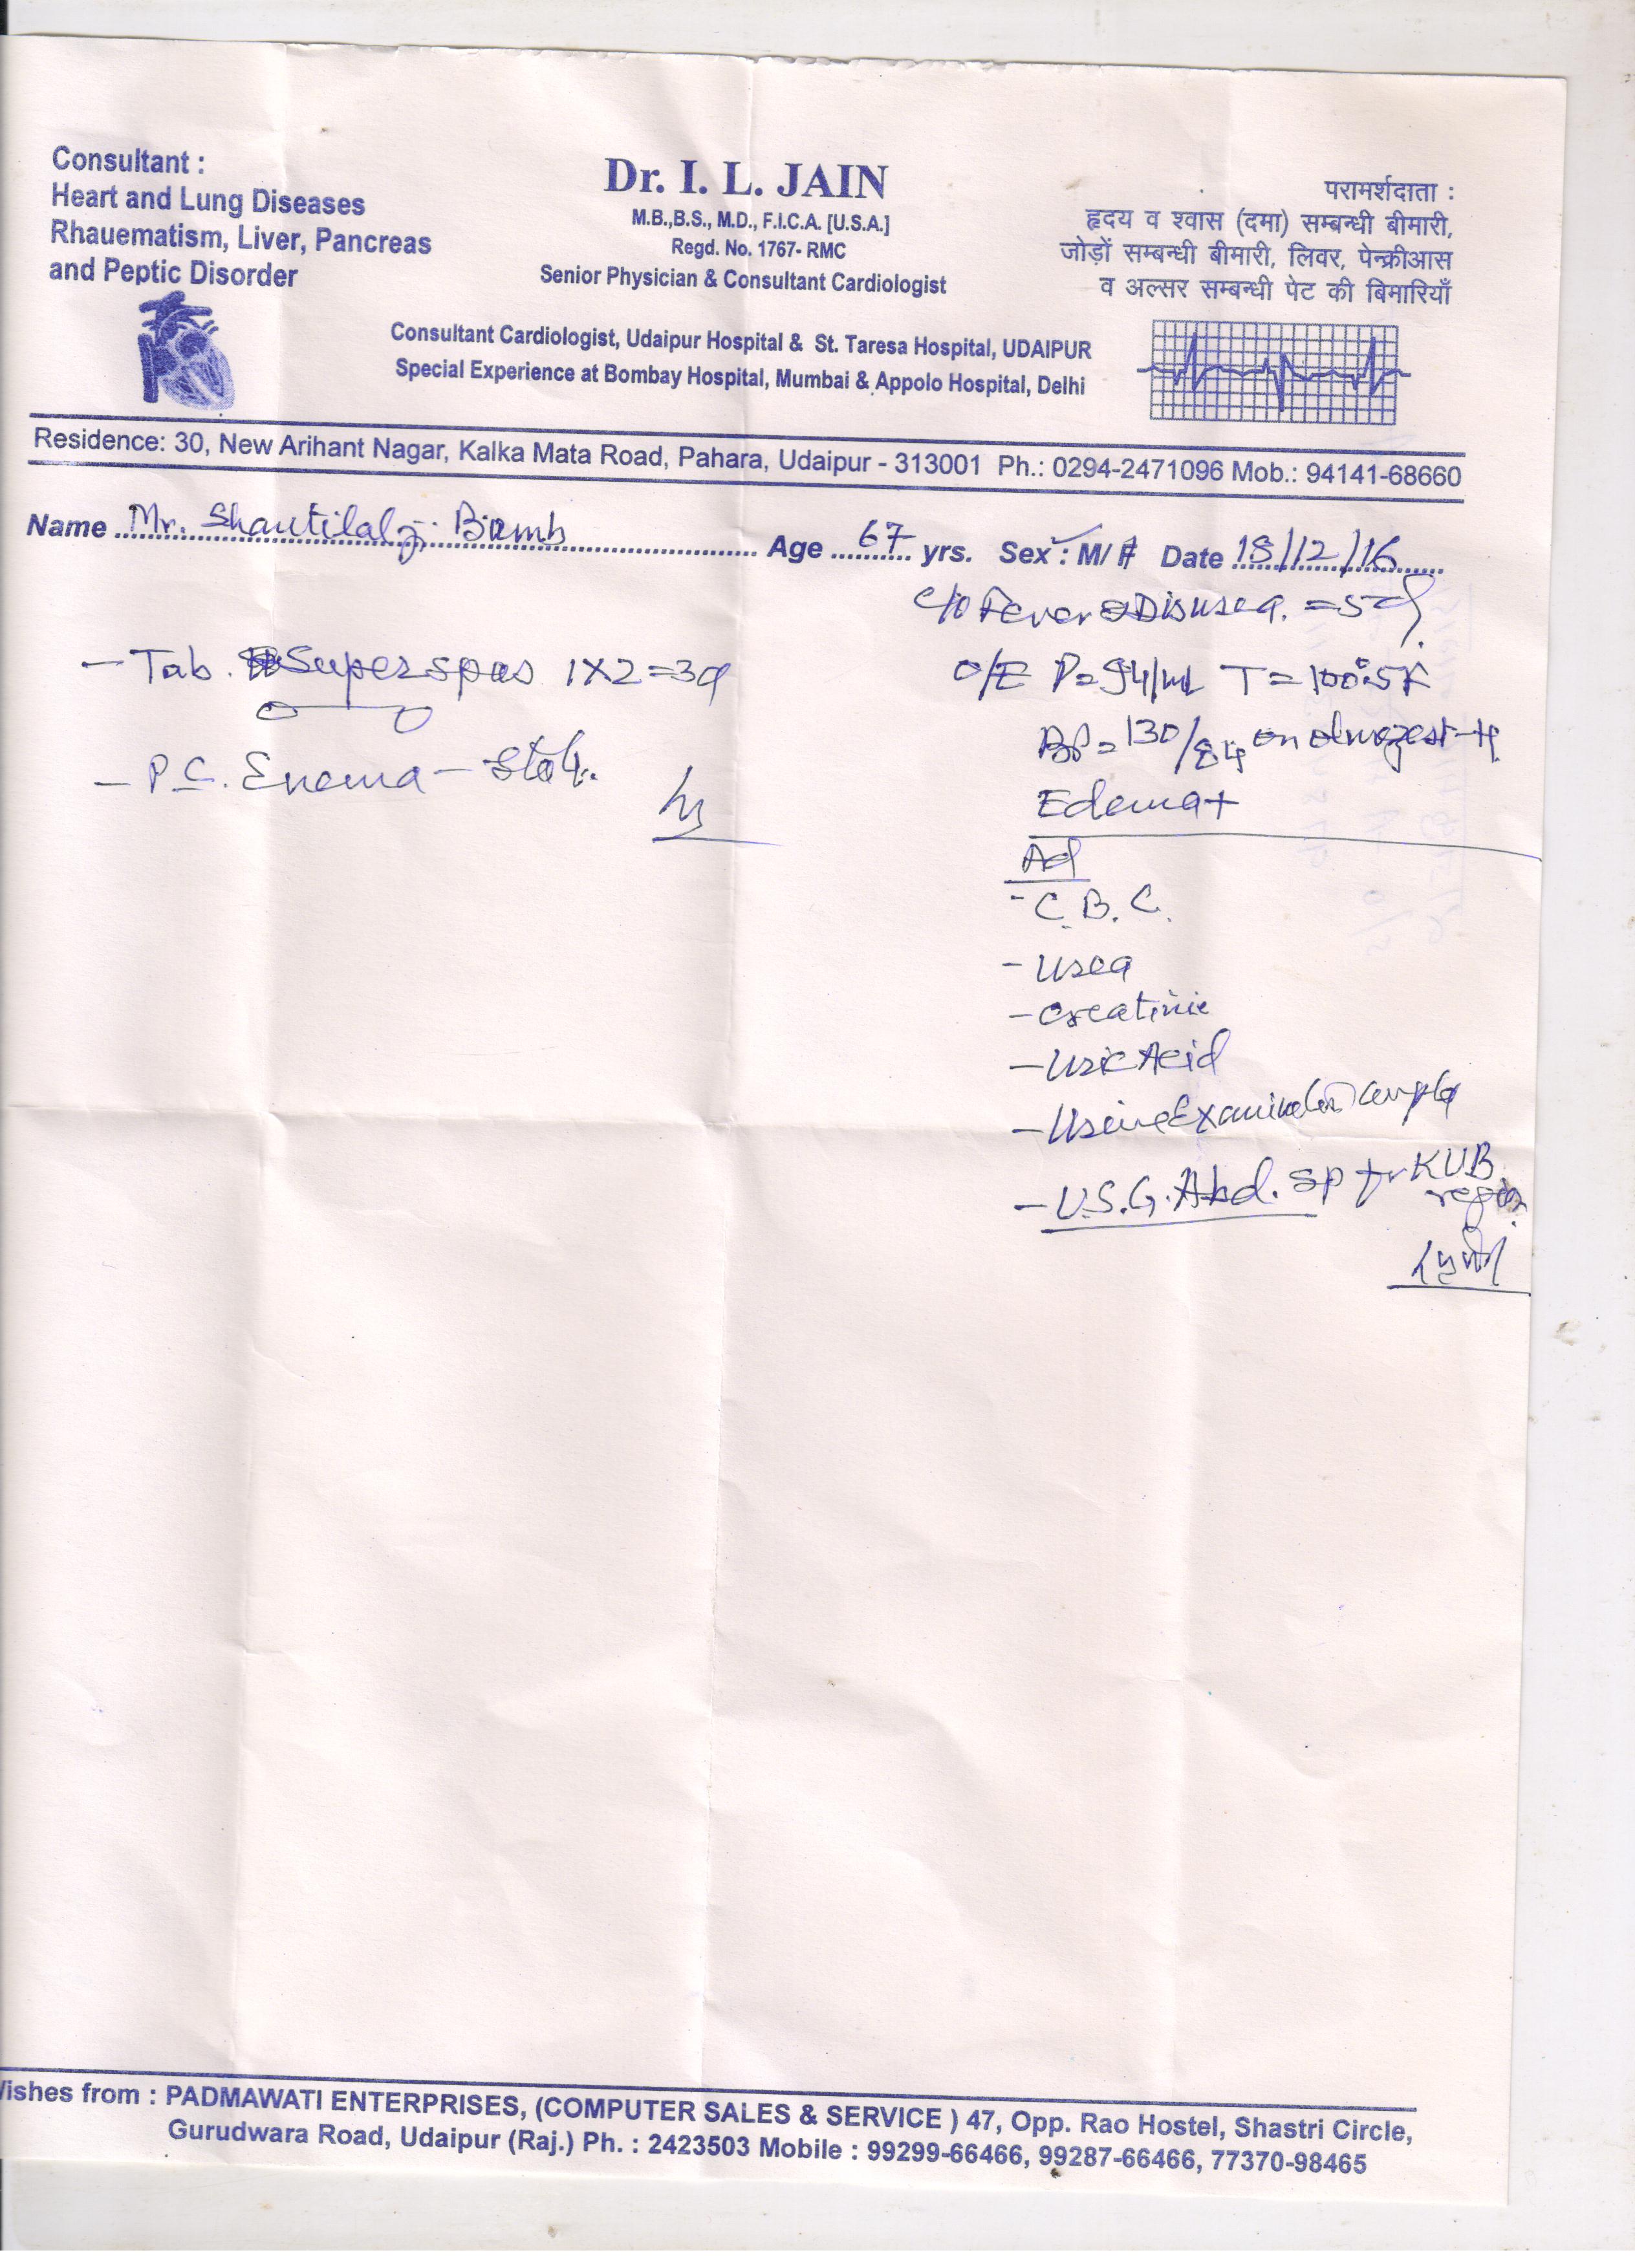 Consultant :
Heart and Lung Diseases
Rhauematism, Liver, Pancreas
and Peptic Disorder
Dr. I. L. JAIN
M.B.,B.S., M.D., F.I.C.A. [U.S.A.]
Regd. No. 1767- RMC
Senior Physician & Consultant Cardiologist
परामर्शदाता :
हृदय व श्वास (दमा) सम्बन्धी बीमारी,
जोड़ों सम्बन्धी बीमारी, लिवर, पेन्क्रीआस
व अल्सर सम्बन्धी पेट की बिमारियाँ
Consultant Cardiologist, Udaipur Hospital & St. Taresa Hospital, UDAIPUR
Special Experience at Bombay Hospital, Mumbai & Appolo Hospital, Delhi
Residence: 30, New Arihant Nagar, Kalka Mata Road, Pahara, Udaipur - 313001 Ph.: 0294-2471096 Mob.: 94141-68660
Name Mr. Shantilalji Bamb Age 67 yrs. Sex : M/ F Date 18/12/16
C/o Fever
- Tab. Superspas 1X2=3d
O/E P=94/m T=100.5F
BP=130/84 on olmezest-H
- P.C. Enema -
Edema+
Ad
- C.B.C.
- Urea
- Creatinie
- Uric Acid
- Urine Examination
- U.S.G. Abd. sp for KUB
region
Wishes from : PADMAWATI ENTERPRISES, (COMPUTER SALES & SERVICE ) 47, Opp. Rao Hostel, Shastri Circle,
Gurudwara Road, Udaipur (Raj.) Ph. : 2423503 Mobile : 99299-66466, 99287-66466, 77370-98465